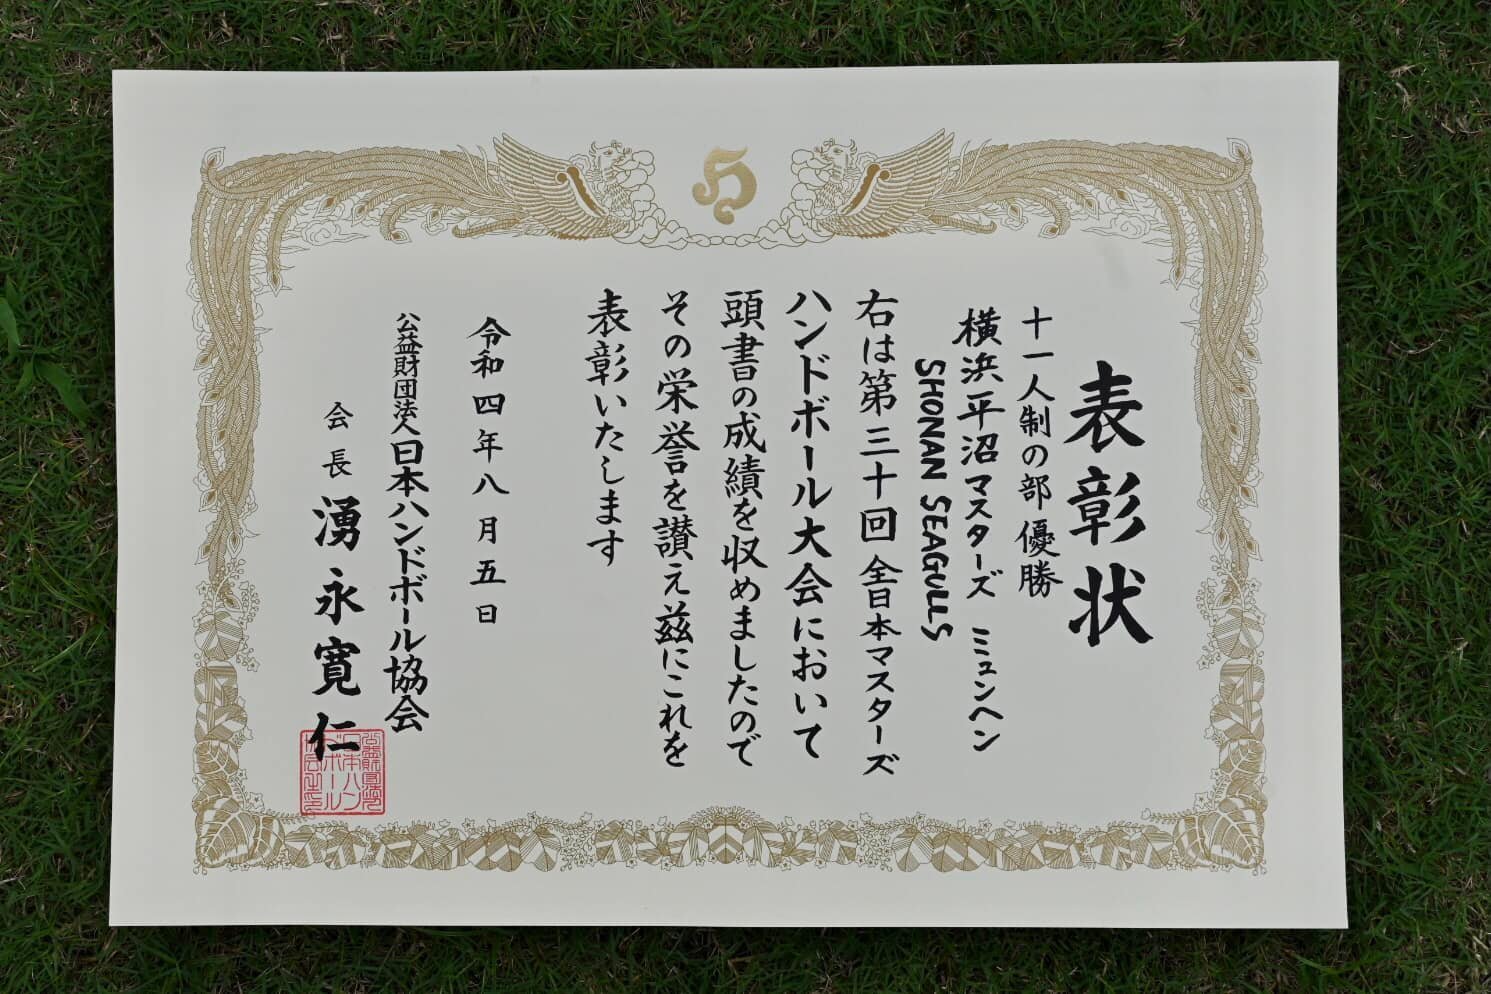 表彰状
十一人制の部 優勝
横浜平沼マスターズ ミュンヘン
SHONAN SEAGULLS
右は第三十回全日本マスターズ
ハンドボール大会において
頭書の成績を収めましたので
その栄誉を讃え茲にこれを
表彰いたします
令和四年八月五日
公益財団法人日本ハンドボール協会
会長 湧永寛仁